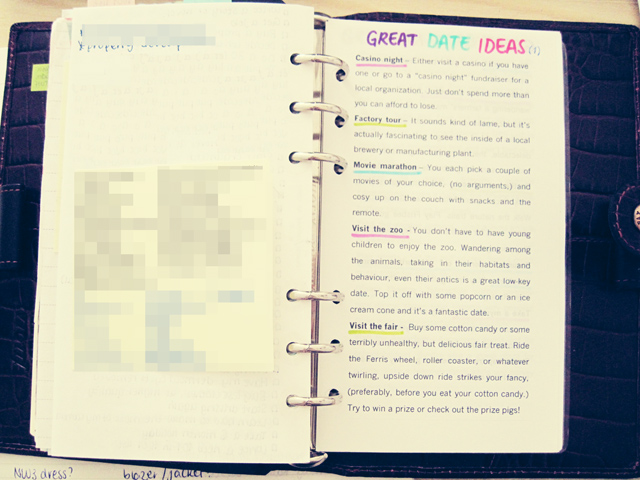 GREAT DATE IDEAS (1)
Casino night – Either visit a casino if you have
one or go to a "casino night" fundraiser for a
local organization. Just don't spend more than
you can afford to lose.
Factory tour – It sounds kind of lame, but it's
actually fascinating to see the inside of a local
brewery or manufacturing plant.
Movie marathon – You each pick a couple of
movies of your choice, (no arguments,) and
cosy up on the couch with snacks and the
remote.
Visit the zoo - You don't have to have young
children to enjoy the zoo. Wandering among
the animals, taking in their habitats and
behaviour, even their antics is a great low-key
date. Top it off with some popcorn or an ice
cream cone and it's a fantastic date.
Visit the fair - Buy some cotton candy or some
terribly unhealthy, but delicious fair treat. Ride
the Ferris wheel, roller coaster, or whatever
twirling, upside down ride strikes your fancy,
(preferably, before you eat your cotton candy.)
Try to win a prize or check out the prize pigs!
dress? blazer / jacket?